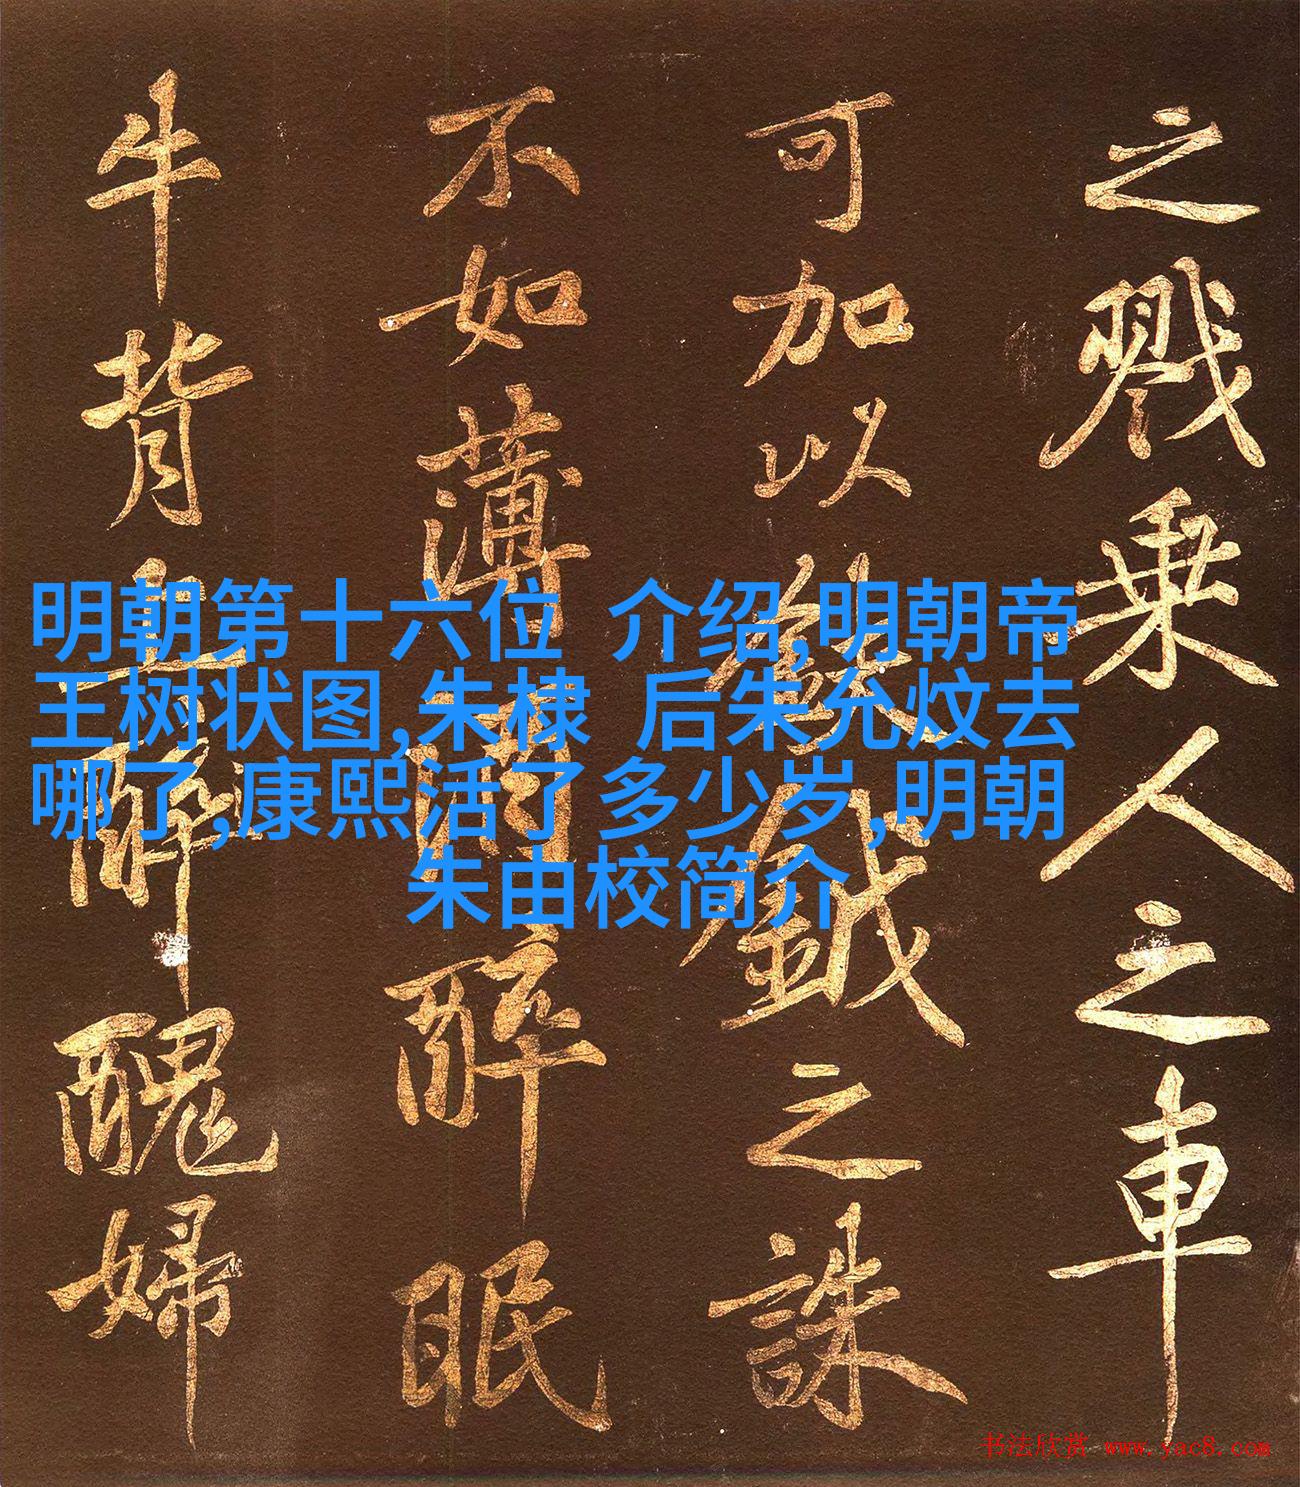 之戮乘人之車
可加以鈇鉞之誅
不如薄醉眠
牛背上醉醜婦
明朝第十六位 介绍,明朝帝
王树状图,朱棣 后朱允炆去
哪了,康熙活了多少岁,明朝
朱由校简介
书法欣赏 www.yac8.com